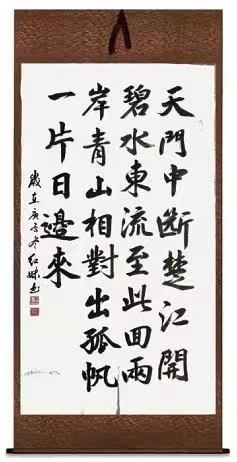 天門中斷楚江開
碧水東流至此回兩
岸青山相對出孤帆
一片日邊來
歲在庚子冬紅妹書